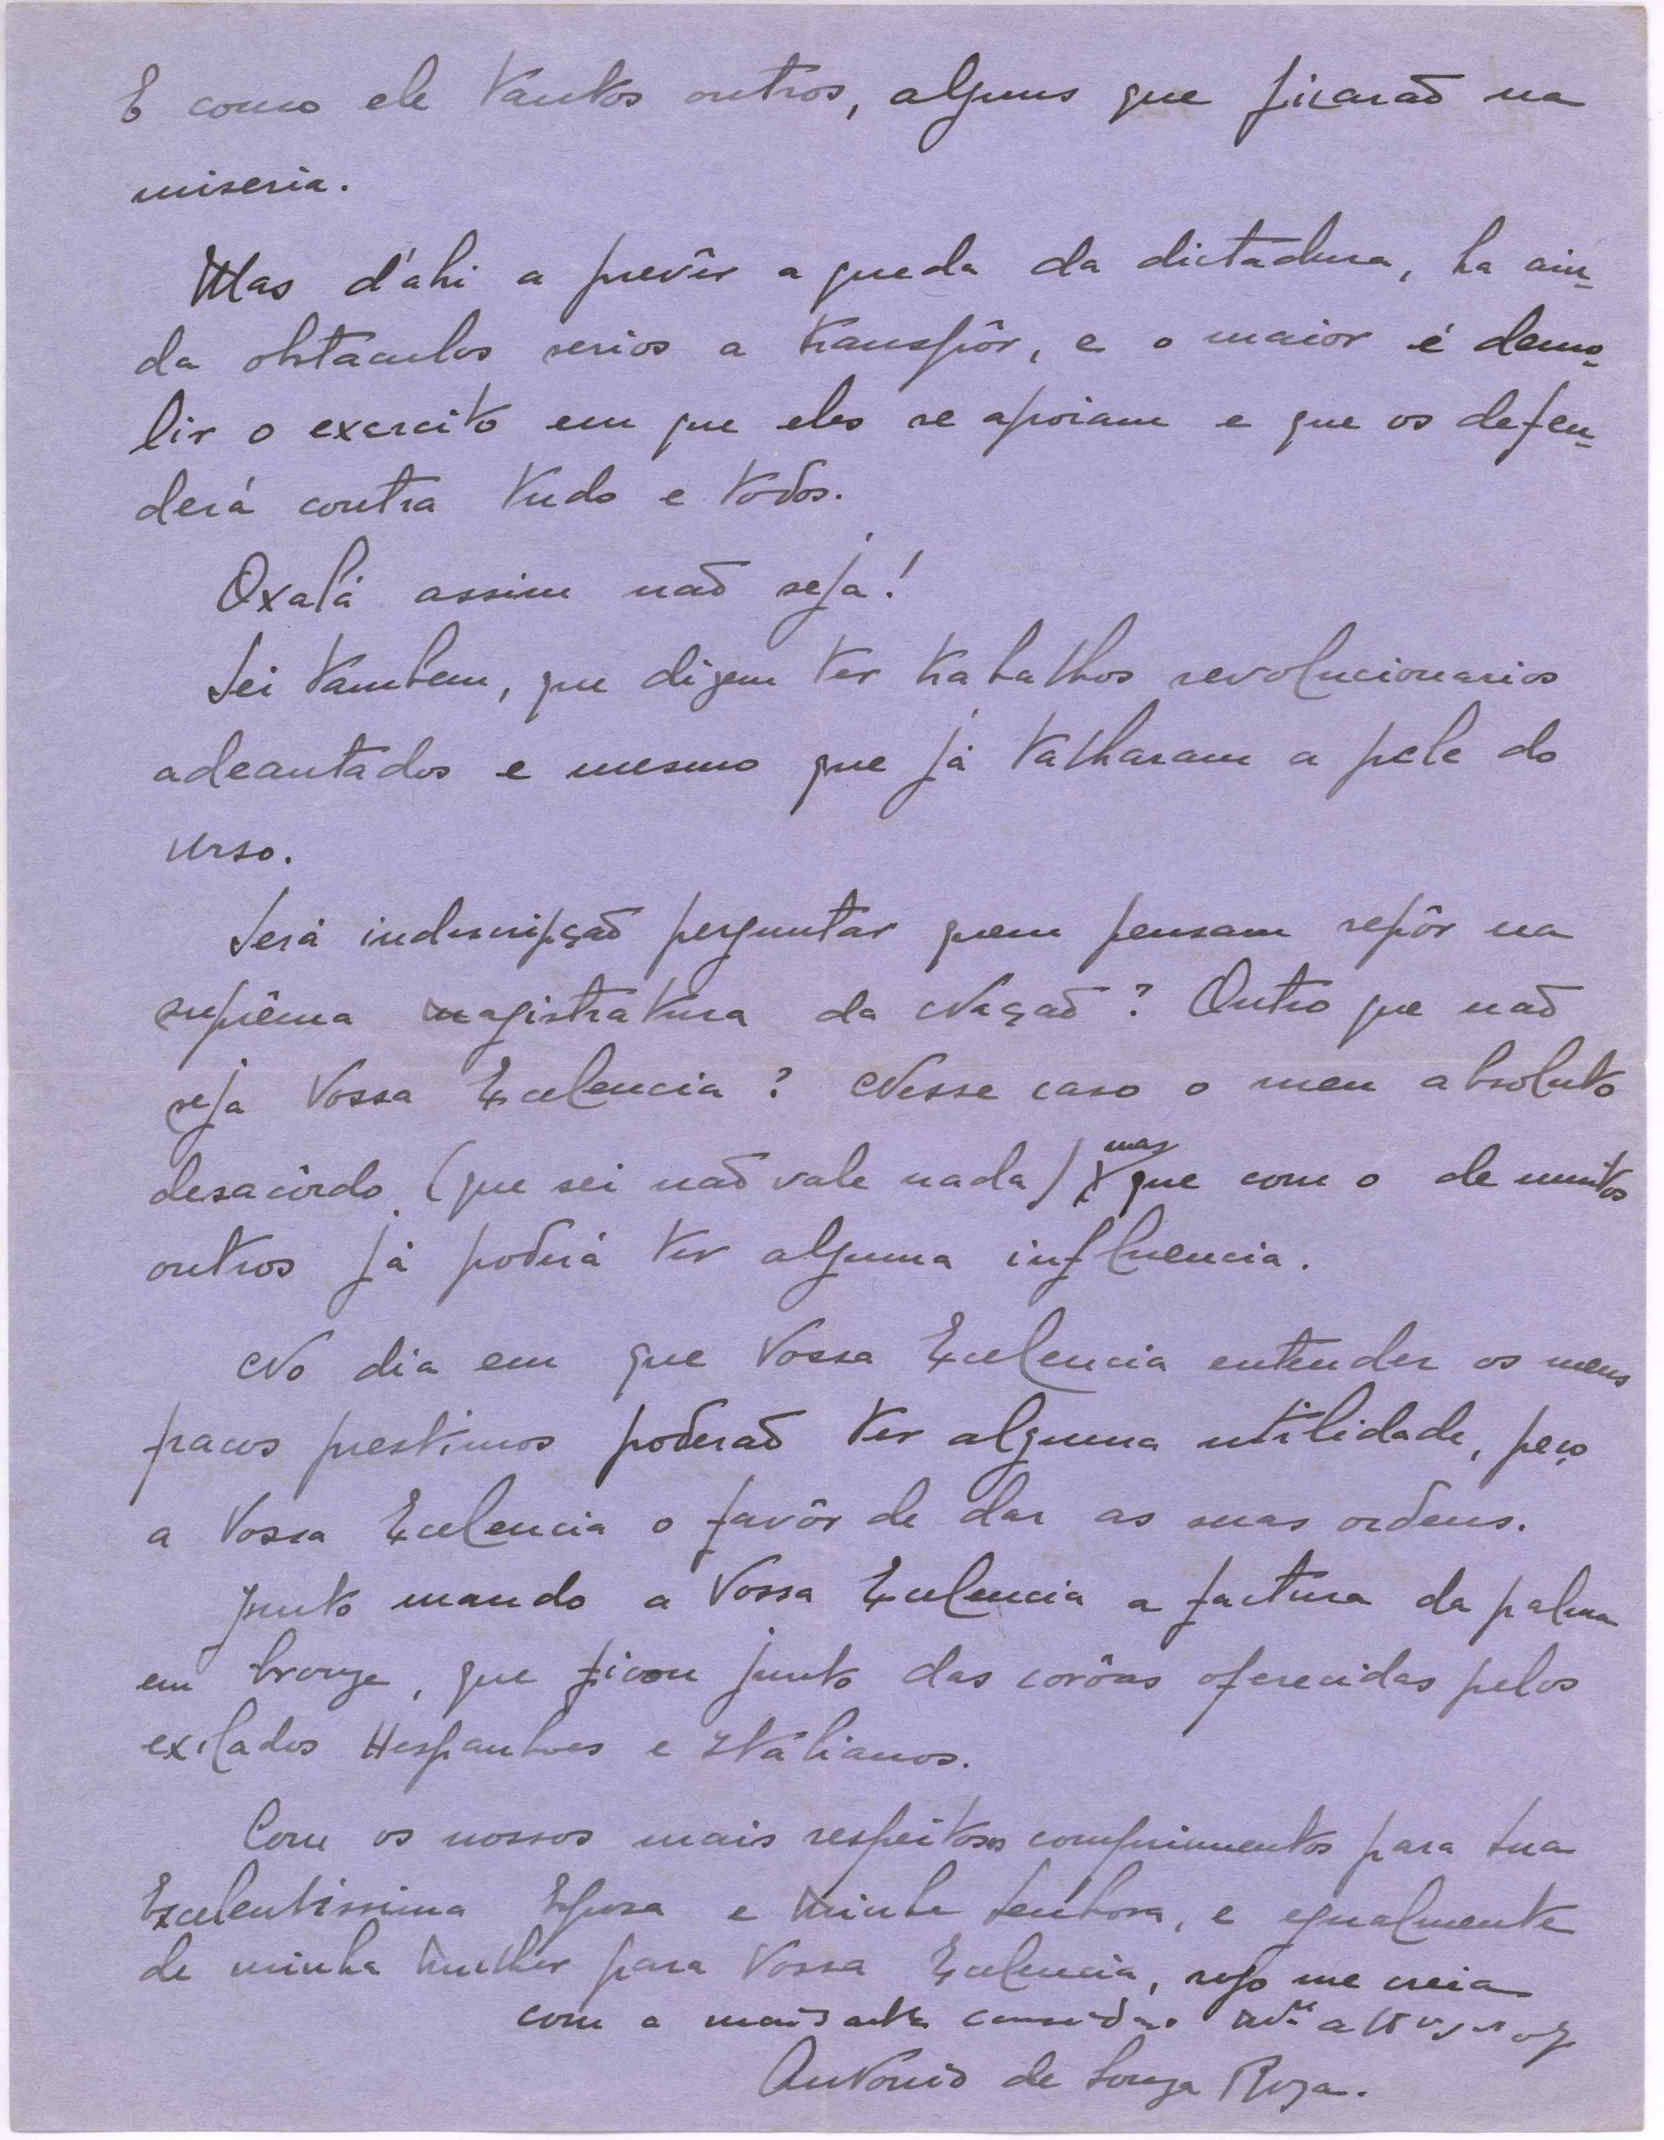 E como ele tantos outros, alguns que ficarão na
miseria.
Mas d'ahi a prevêr a queda da dictadura, ha ain-
da obstaculos serios a transpôr, e o maior é demo-
lir o exercito em que eles se apoiam e que os defen-
derá contra tudo e todos.
Oxalá assim não seja!
Sei tambem, que dizem ter trabalhos revolucionarios
adeantados e mesmo que já talharam a pele do
urso.
Será indiscripção perguntar quem pensam repôr na
suprêma magistratura da Nação? Outro que não
seja Vossa Excelencia? Nesse caso o meu absoluto
desacôrdo (que sei não vale nada) mas que com o de muitos
outros já poderá ter alguma influencia.
No dia em que Vossa Excelencia entender os meus
fracos prestimos poderão ter alguma utilidade, peço
a Vossa Excelencia o favôr de dar as suas ordens.
Junto mando a Vossa Excelencia a factura da palma
em bronze, que ficou junto das corôas oferecidas pelos
exilados Hespanhoes e Italianos.
Com os nossos mais respeitosos comprimentos para Sua
Excelentissima Esposa e Minha Senhora, e egualmente
de minha Mulher para Vossa Excelencia, rogo me creia
com a mais alta
Antonio de Souza Roza.